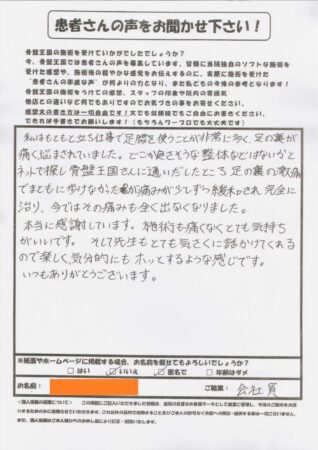 患者さんの声をお聞かせ下さい！
骨盤王国の施術を受けていかがでしたでしょうか？
今、骨盤王国では患者さんの声を募集しています。皆様に当院独自のソフトな施術を
受けた感想や、施術後の軽やかな感覚をお伝えするのに、実際に施術を受けた
「患者さんの率直な声」が何よりの力となり、また私どもの今後の参考となります！
骨盤王国の施術をうけての感想、スタッフの印象や院内の雰囲気
他店との違いなど何でもありですのでお気づきの事をお寄せください。
感想文の書き方は一切自由です！文でも似顔絵でもご自由におまかせください。
できれば手書きでお願いします！（もちろんワープロでも大丈夫です）
私はもともと立ち仕事で足腰を使うことが非常に多く、足の裏が
痛く悩まされていました。どこか良さそうな整体などはないかと
ネットで探し骨盤王国さんに通いだしたところ足の裏の激痛
でまともに歩けなかった痛みが少しずつ緩和され完全に
治り、今ではその痛みも全く出なくなりました。
本当に感謝しています。施術も痛くなくとても気持ち
がいいです。そして先生もとても気さくに話かけてくれる
ので楽しく気分的にもホッとするような感じです。
いつもありがとうございます。
※紙面やホームページに掲載する場合、お名前を載せてもよろしいでしょうか？
□はい □いいえ □匿名で □年齢はダメ
お名前： ご職業：会社員